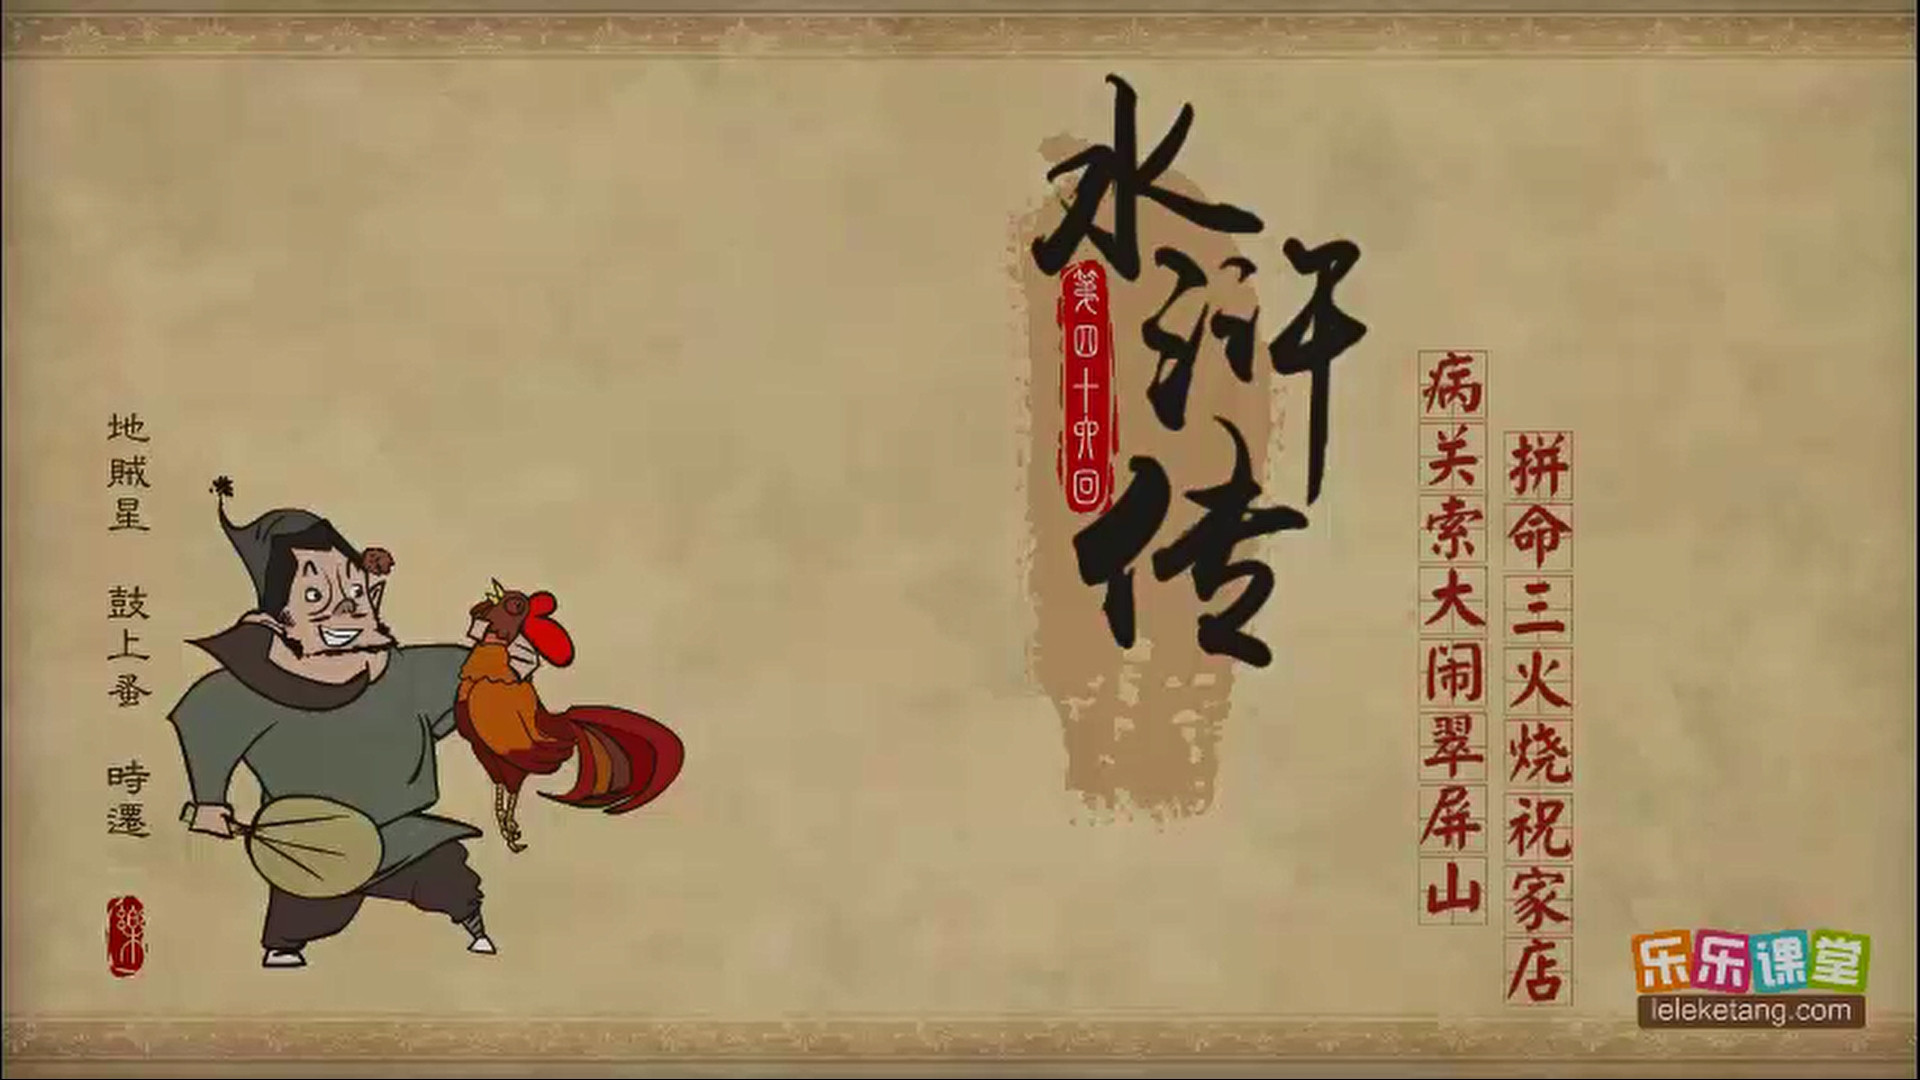 水浒传
第四十六回
病关索大闹翠屏山
拼命三火烧祝家店
地賊星 鼓上蚤 時遷
樂
乐乐课堂
leleketang.com